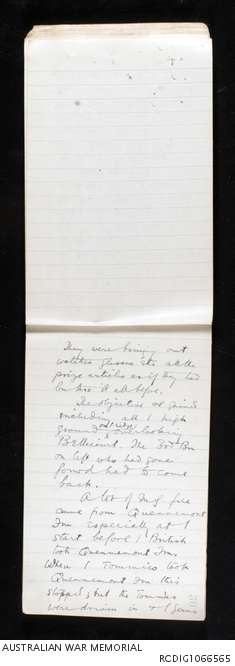 They were bringing out
watches glasses etc all the
prize articles as if they had
been thro it all before.
The objectives we gained
including all / high
ground and ridge overlooking
Bellicourt. The 30th Bn
on left who had gone
forwd had to come
back.
A lot of M.G. fire
came from Quennemont
Fm especially at /
start before / British
took Quennemont Fm.
When / Tommies took
Quennemont Fm this
stopped; but the Tommies
were driven in & / Germs
AUSTRALIAN WAR MEMORIAL
RCDIG1066565